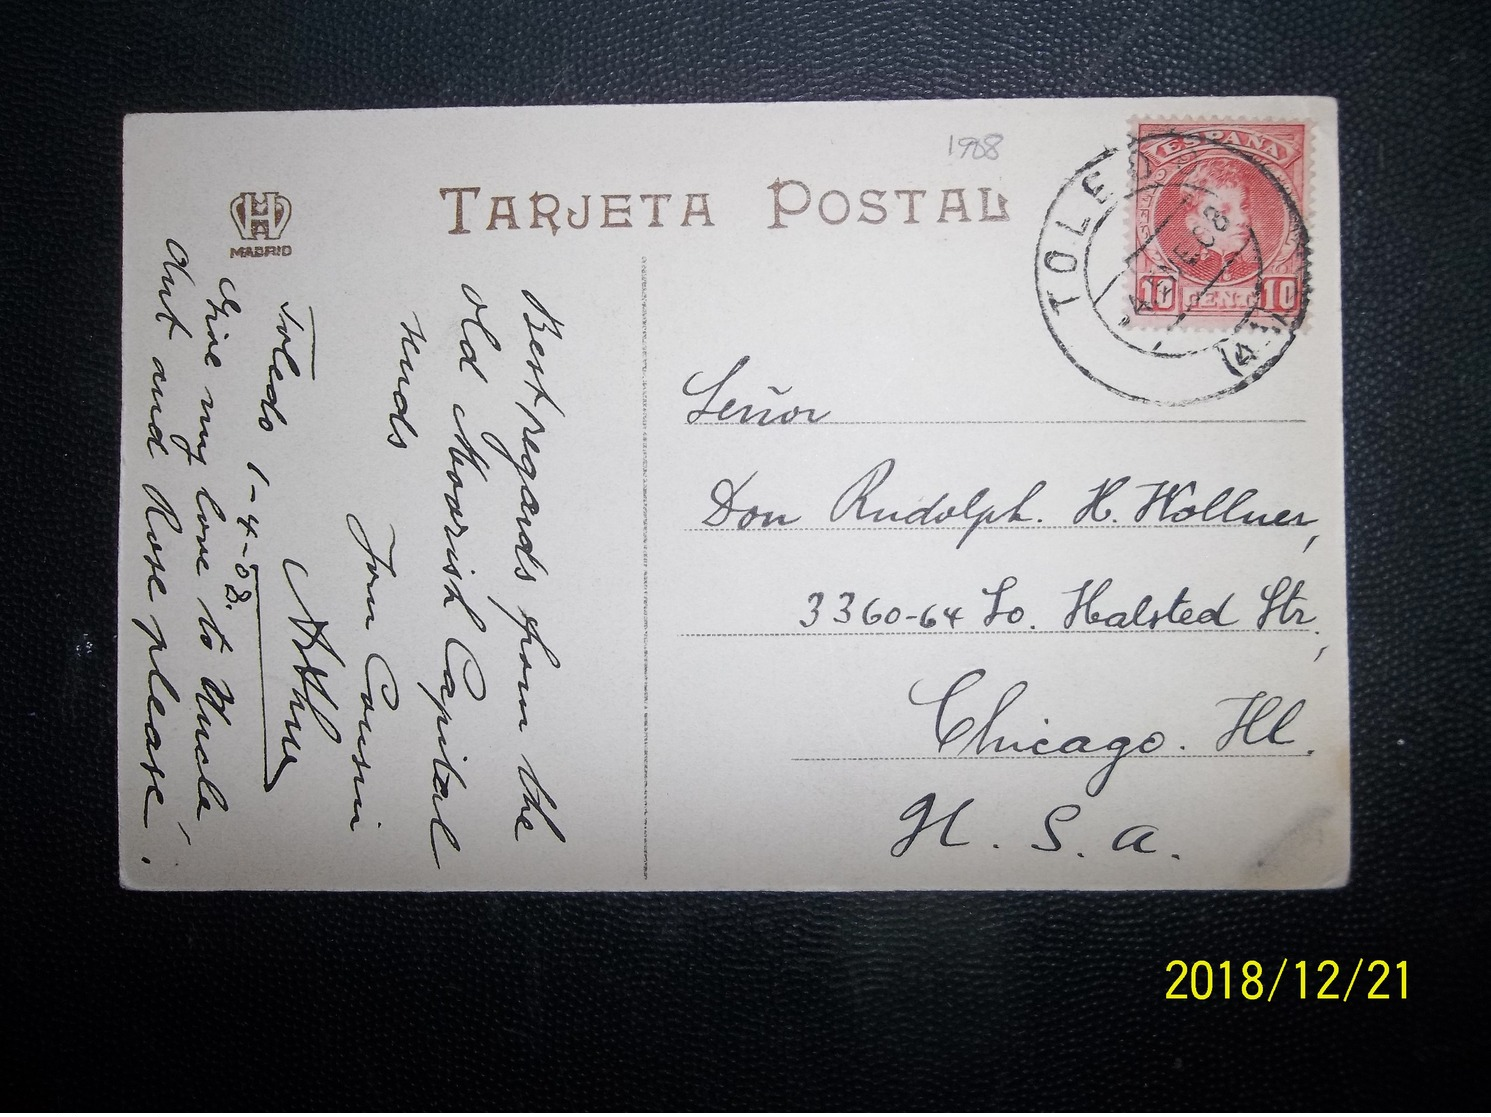 1908
TARJETA POSTAL
HM
MADRID
ESPAÑA
10 CENT. 10
TOLEDO
4 ENE 08
Señor
Don Rudolph. H. Wollner,
3360-64 So. Halsted Str,
Chicago. Ill.
U. S. A.
Best regards from the
old Moorish Capital
sends
Your Cousin
Arthur
Toledo 1-4-08.
Give my love to Uncle
Aunt and Rose please.
2018/12/21